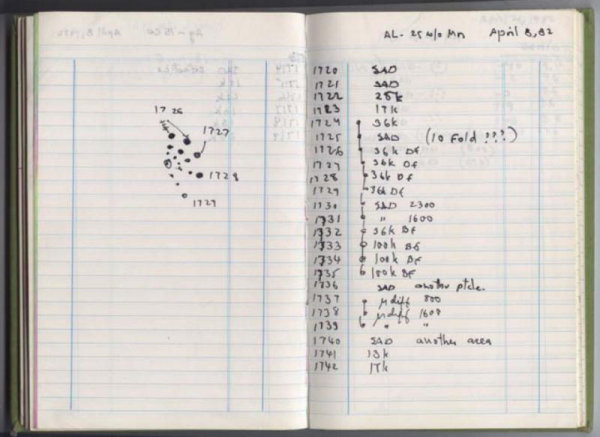 1726
1727
1728
1729
AL-25 w/o Mn April 8, 82
1720 SAD
1721 SAD
1722 25k
1723 17k
1724 36k
1725 SAD (10 Fold ???)
1726 36k DF
1727 36k DF
1728 36k DF
1729 36k DF
1730 SAD 2300
1731 " 1600
1732 36k BF
1733 100k BF
1734 100k BF
1735 150k BF
1736 SAD another ptcle.
1737 μdiff 800
1738 μdiff 1600
1739 " "
1740 SAD another area
1741 13k
1742 17k